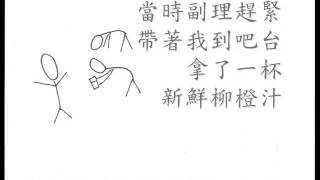 當時副理趕緊
帶著我到吧台
拿了一杯
新鮮柳橙汁